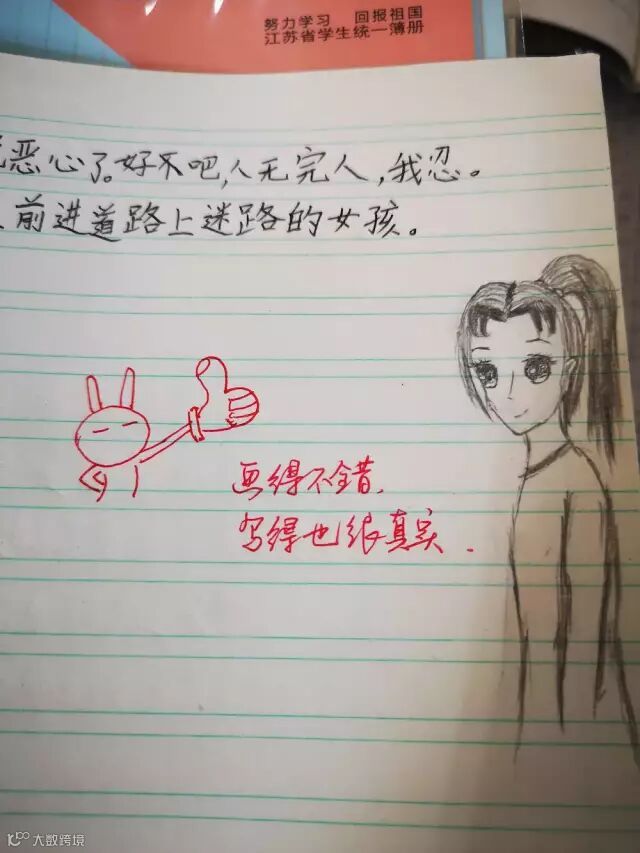 努力学习 回报祖国
江苏省学生统一簿册
恶心了。好不吧,人无完人,我忍。
前进道路上迷路的女孩。
画得不错,
写得也很真实.
大数跨境